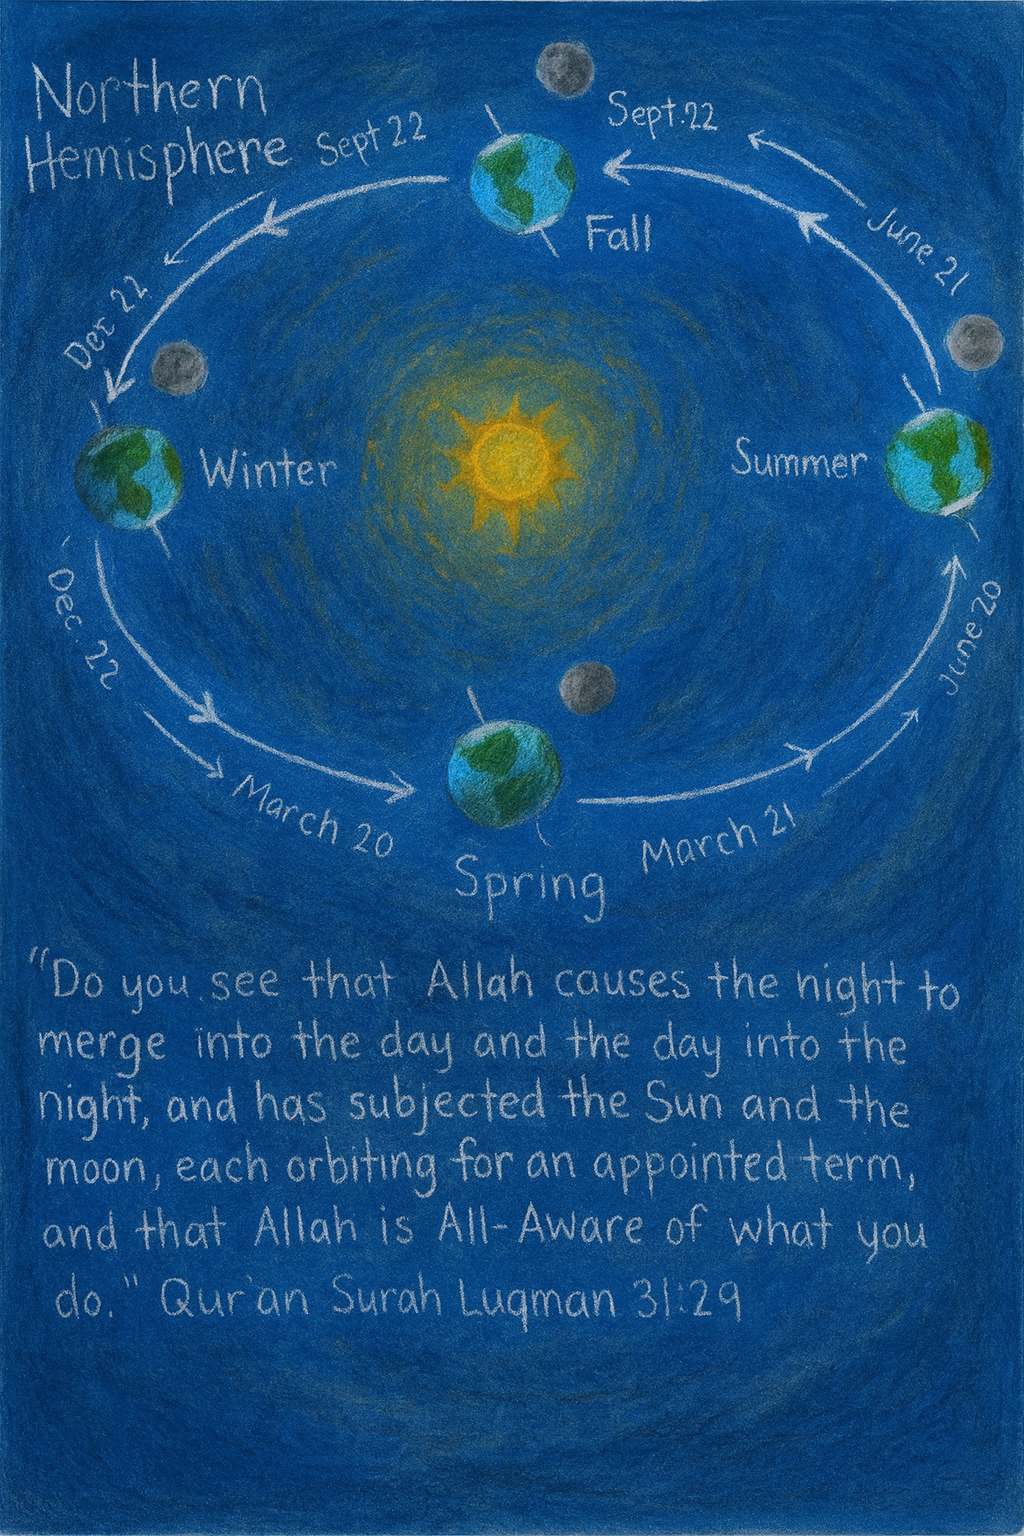 Northern
Hemisphere
Sept 22
Sept. 22
Fall
June 21
Dec 22
Winter
Summer
Dec. 22
June 20
March 20
March 21
Spring
"Do you see that Allah causes the night to
merge into the day and the day into the
night, and has subjected the Sun and the
moon, each orbiting for an appointed term,
and that Allah is All-Aware of what you
do." Qur'an Surah Luqman 31:29